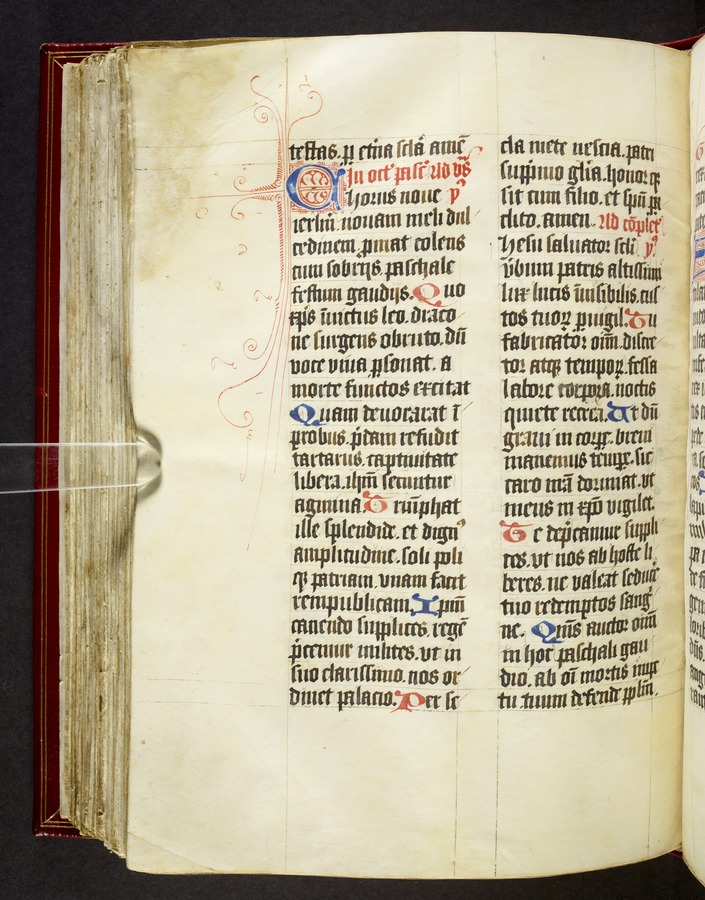 testas. ꝑ etīna sclā amē
In octᵃ pasē ad vꝰ
Chorus noue ẏ
ierlm̄ nouam meli dul
cedinem ꝓmat colens
cum sobrijs paschale
festum gaudijs. Quo
xp̄s īuictus leo. draco
ne surgens obruto. dū
voce viua ꝑsonat. a
morte functos excitat
Quam deuorarat ī
probus. p̄dam refudit
tartarus. captiuitate
libera. ihm̄ secuntur
agmina. Triūphat
ille splendide. et dignꝰ
amplitudine. soli poli
qꝫ patriam. vnam facit
rempublicam. Ipm̄
canendo supplices. regē
p̄cemur milites. vt in
suo clarissimo. nos or
dinet palacio. Per se
cla mete nescia. patri
suppmo gl̄ia. honorqꝫ
sit cum filio. et spū ꝑa
clito. amen. Ad cōpletʳ
Jhesu saluator scl̄i ẏ
v̄bum patris altissimi
lux lucis īuisibilis. cus
tos tuoꝝ ꝑuigil. Tu
fabricator om̄. discre
tor atqꝫ tempoꝝ. fessa
labore corpora. noctis
quiete recrea. Ut dū
graui in corꝑe. breui
manemus tēꝑe. sic
caro mr̄a dormiat. vt
mens in xp̄o vigilet.
Te dep̄camur suppli
ces. vt nos ab hoste li
beres. ne valeat seduceʳ
tuo redemptos sangⁱ
ne. Qm̄s auctor om̄
in hoc paschali gau
dio. ab oī mortis impe
tu tuum defende ppl̄m.